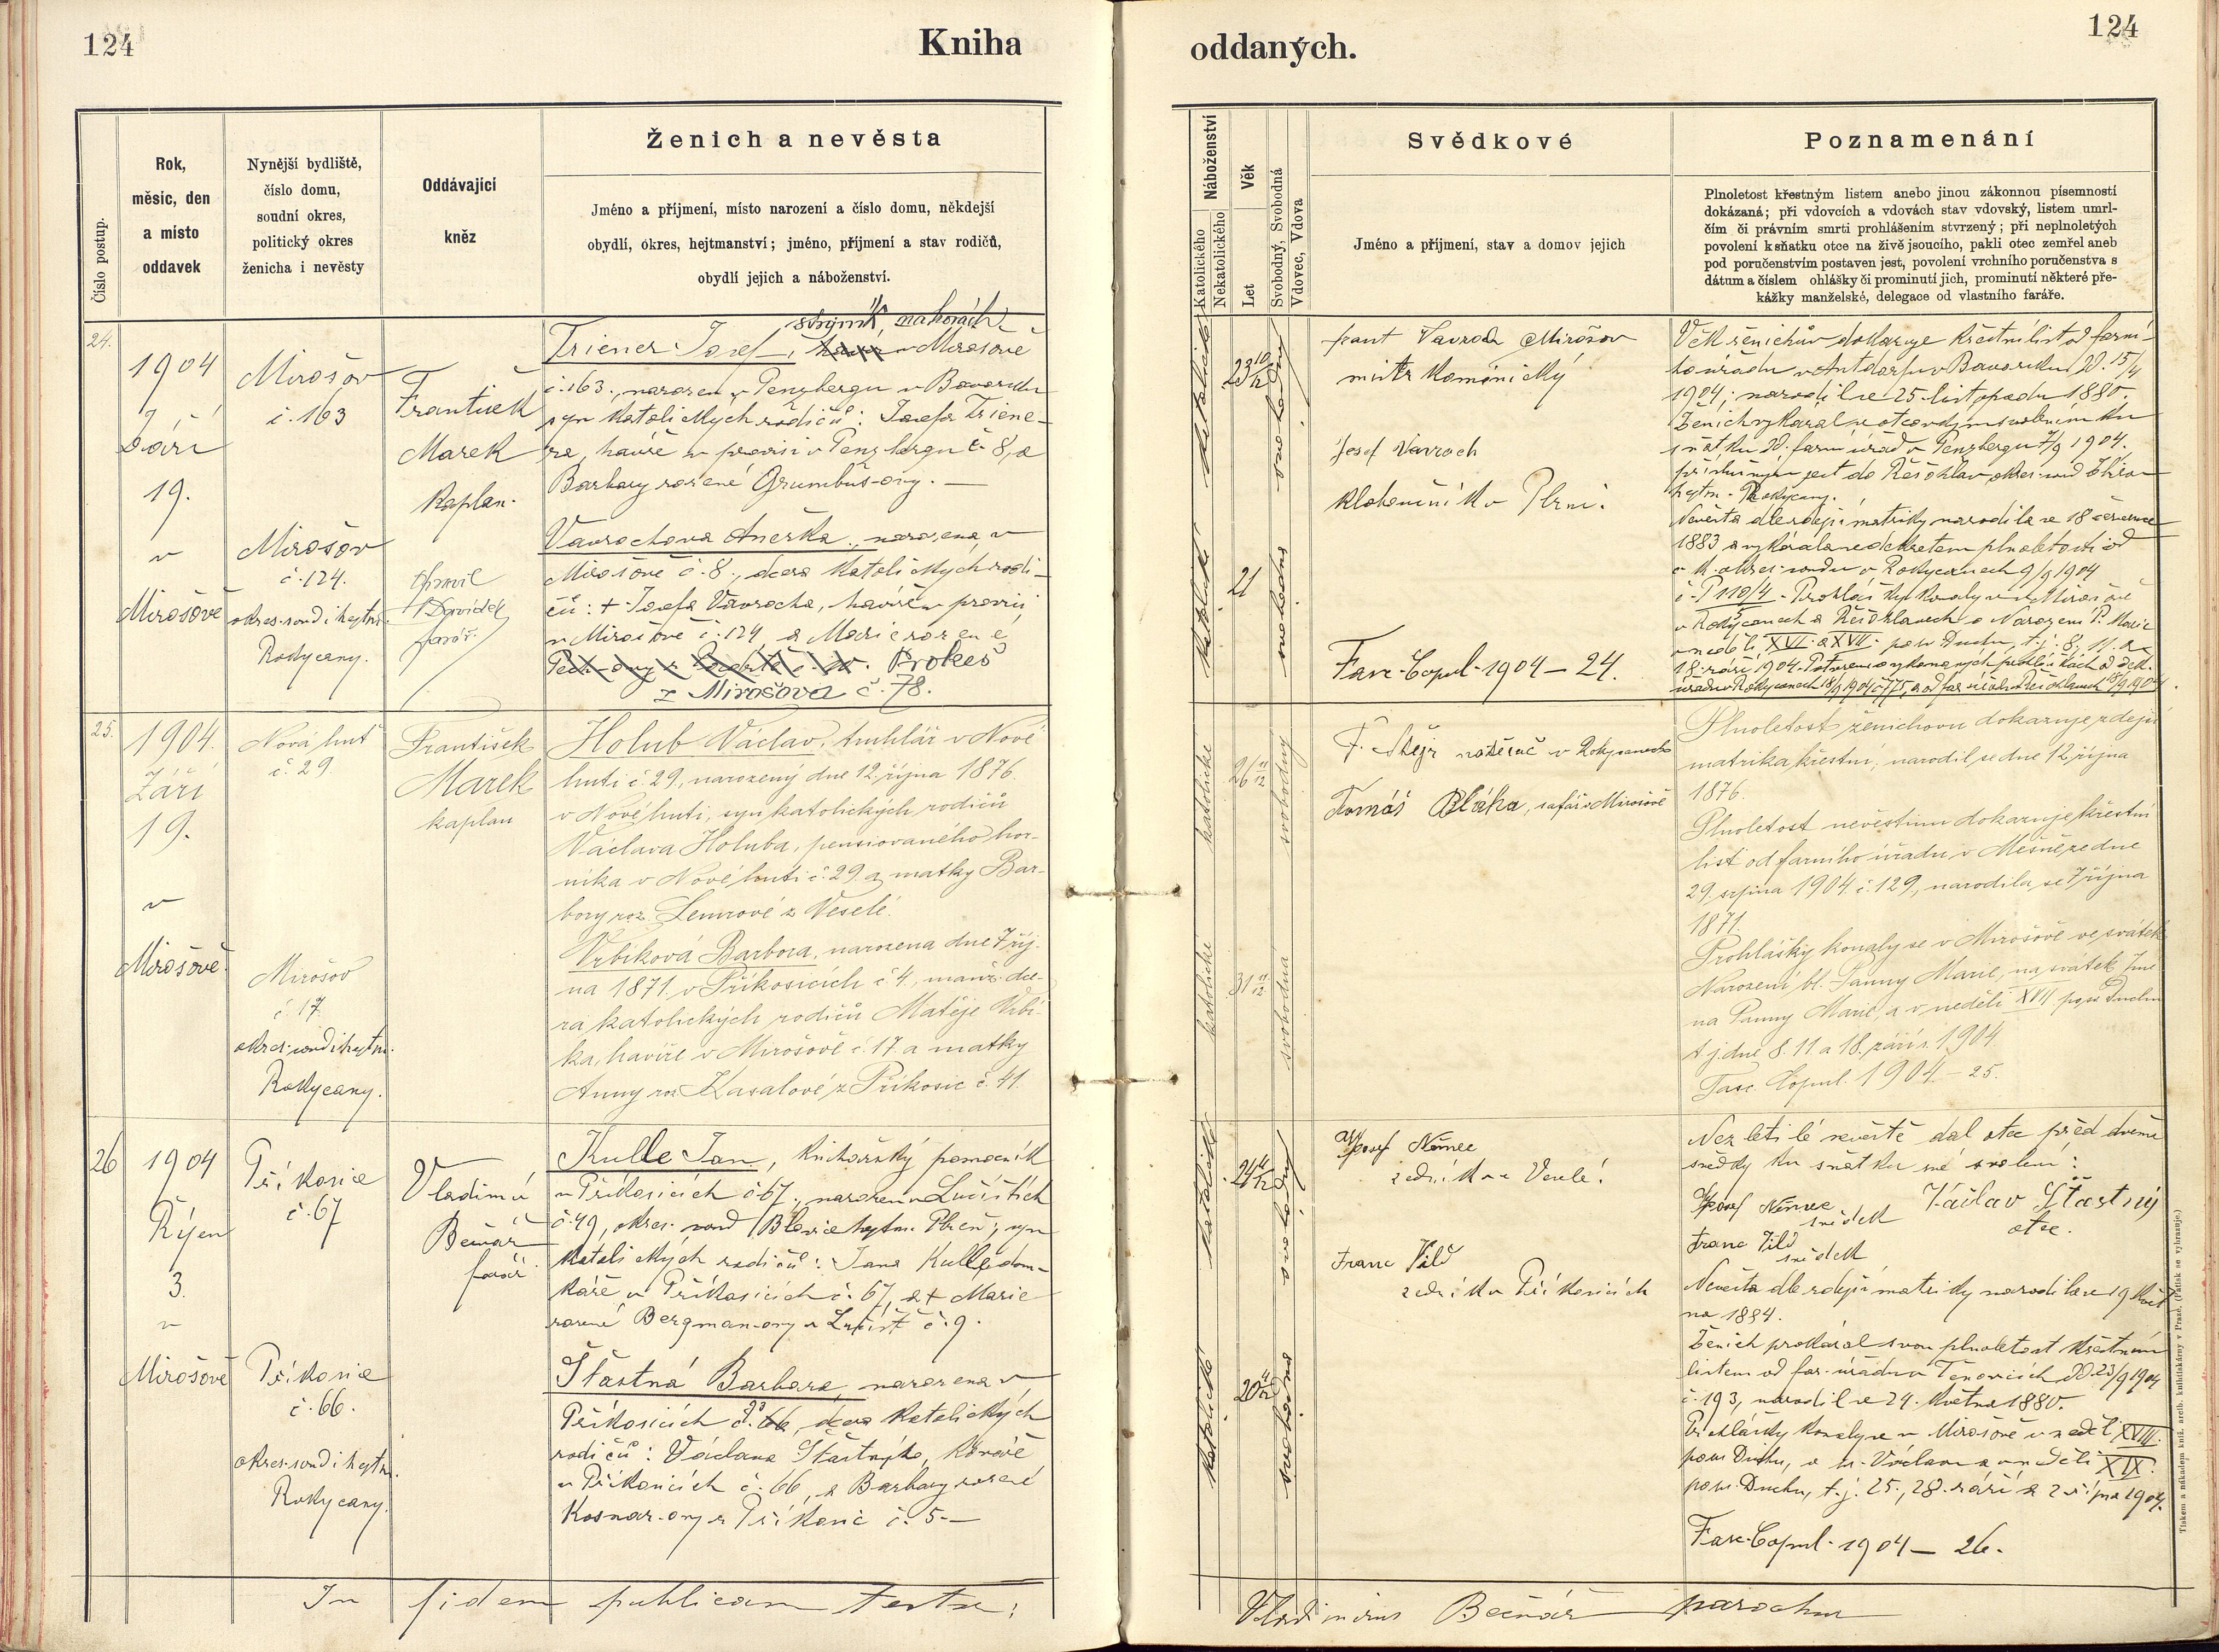 124
Kniha
oddaných.
124
Číslo postup.
Rok,
měsic, den
a místo
oddavek
Nynější bydliště,
číslo domu,
soudní okres,
politický okres
ženicha i nevěsty
Oddávající
kněz
Ženich a nevěsta
Jméno a příjmení, místo narození a číslo domu, někdejší
obydlí, okres, hejtmanství; jméno, příjmení a stav rodičů,
obydlí jejich a náboženství.
Náboženství
Katolického
Nekatolického
Věk
Let
Svobodný, Svobodná
Vdovec, Vdova
Svědkové
Jméno a příjmení, stav a domov jejich
Poznamenání
Plnoletost křestným listem anebo jinou zákonnou písemností
dokázaná; při vdovcích a vdovách stav vdovský, listem umrl-
čím či právním smrti prohlášením stvrzený; při neplnoletých
povolení k sňatku otce na živě jsoucího, pakli otec zemřel aneb
pod poručenstvím postaven jest, povolení vrchního poručenstva s
dátum a číslem ohlášky či prominutí jich, prominutí některé pře-
kážky manželské, delegace od vlastního faráře.
24.
1904
Září
19.
v
Mirošově
Mirošov
č. 163
Mirošov
č. 124.
okres. soud i hejtm.
Rokycany.
František
Marek
kaplan.
farář.
strojník, na horách
Triener Josef, v Mirošově
č. 163., narozen v Penzbergu v Bavorsku
syn katolických rodičů: Josefa Triene-
ra, havíře v provisi v Penzbergu č. 8, a
Barbary rozené
Vavrochova Anežka, narozena v
Mirošově č. 8., dcera katolických rodi-
čů: + Josefa Vavrocha, havíře v provisi
v Mirošově č. 124, a Marie rozené
Prokeš
z Mirošova č. 78.
katolické
katolické
23 10/12
21
svobodný
svobodná
Frant Vavroch Mirošov
mistr kominický
Josef Vavroch
klobouČník v Plzni.
Fasc. Copul. 1904 – 24.
Věk ženichův dokazuje křestní list od farní-
ho úřadu v Bavorsku 15/4
1904; narodil se 25. listopadu 1880.
Ženich vykázal se otcovským svolením ku
sňatku farní úřad v Penzbergu 7/9 1904.
příslušným jest do
hejtm. Rokycany.
Nevěsta dle zdejší matriky narodila se 18 července
1883 a vykázala se dekretem plnoletosti od
c. k. okres. soudu v Rokycanech 9/9 1904
č. P 110/4. Prohlášky konaly se v Mirošově
v Rokycanech a o Narození P. Marie
v neděli XVI. a XVII. po sv. Duchu, t. j. 8., 11. a
18. září 1904.
25.
1904.
Září
19.
v
Mirošově.
Nová huť
č. 29
Mirošov
č. 17
okres. soud i hejtm.
Rokycany.
František
Marek
kaplan
Holub Václav, truhlář v Nové
huti č. 29, narozený dne 12. října 1876.
v Nové huti, syn katolických rodičů
Václava Holuba, pensiovaného hor-
níka v Nové huti č. 29. a matky Bar-
bory roz. Lemrové z Veselé.
Vrbíková Barbora, narozena dne 7 říj-
na 1871. v Příkosicích č. 4., manž. dce-
ra katolických rodičů Matěje Vrbí-
ka, havíře v Mirošově č. 17. a matky
Anny roz. Kasalové z Příkosic č. 41.
katolické
katolické
26 11/12
31 11/12
svobodný
svobodná
v Rokycanech
Tomáš Bláha, šafář v Mirošově
Plnoletost ženichovu dokazuje zdejší
matrika křestní; narodil se dne 12 října
1876.
Plnoletost nevěstinu dokazuje křestní
list od farního úřadu v Měšně ze dne
29. srpna 1904. č. 129., narodila se 7 října
1871.
Prohlášky konaly se v Mirošově ve svátek
Narození bl. Panny Marie, na svátek Jmé-
na Panny Marie, a v neděli XVII po sv. Duchu
t. j. dne 8. 11. a 18. září r. 1904
Fasc. Copul. 1904. – 25.
26
1904
Říjen
3.
v
Mirošově
Příkosice
č. 67
Příkosice
č. 66.
okres. soud i hejtm.
Rokycany.
Vladimír
Bečvář
farář.
Kulle Jan, kuchařský pomocník
v Příkosicích č. 67., narozen v Lučištích
č. 49, okres. soud Blovice hejtm. Plzeň; syn
katolických rodičů: Jana Kulle, dom-
káře v Příkosicích č. 67, a + Marie
rozené Bergman-ovy z Lučišť č. 9.
Šťastná Barbara, narozena v
Příkosicích č. 66, dcera katolických
rodičů: Václava Šťastného, kováře
v Příkosicích č. 66, a Barbary rozené
Kosnar-ovy z Příkosic č. 5.
katolické
katolické
24 4/12
20 4/12
svobodný
svobodná
Josef Němec
zedník ve Veselé.
Franc Vild
zedník v Příkosicích
Nezletilé nevěstě dal otec před dvěma
svědky ku sňatku své svolení:
Josef Němec
svědek
Václav Šťastný
otec.
Franc Vild
svědek
Nevěsta dle zdejší matriky narodila se 19 květ-
na 1884.
Ženich prokázal svou plnoletost křestním
listem od far. úřadu v Letinách 23/9 1904
č. 193, narodil se 24. května 1880.
Prohlášky konaly se v Mirošově v neděli XVIII.
po sv. Duchu, o sv. Václavu a v neděli XIX.
po sv. Duchu, t. j. 25., 28. září a 2 října 1904.
Fasc. Copul. 1904 – 26.
In fidem publicam testor:
Vladimirus Bečvář parochus
Tiskem a nákladem kníž. arcib. knihtiskárny v Praze. (Patisk se vyhrazuje.)